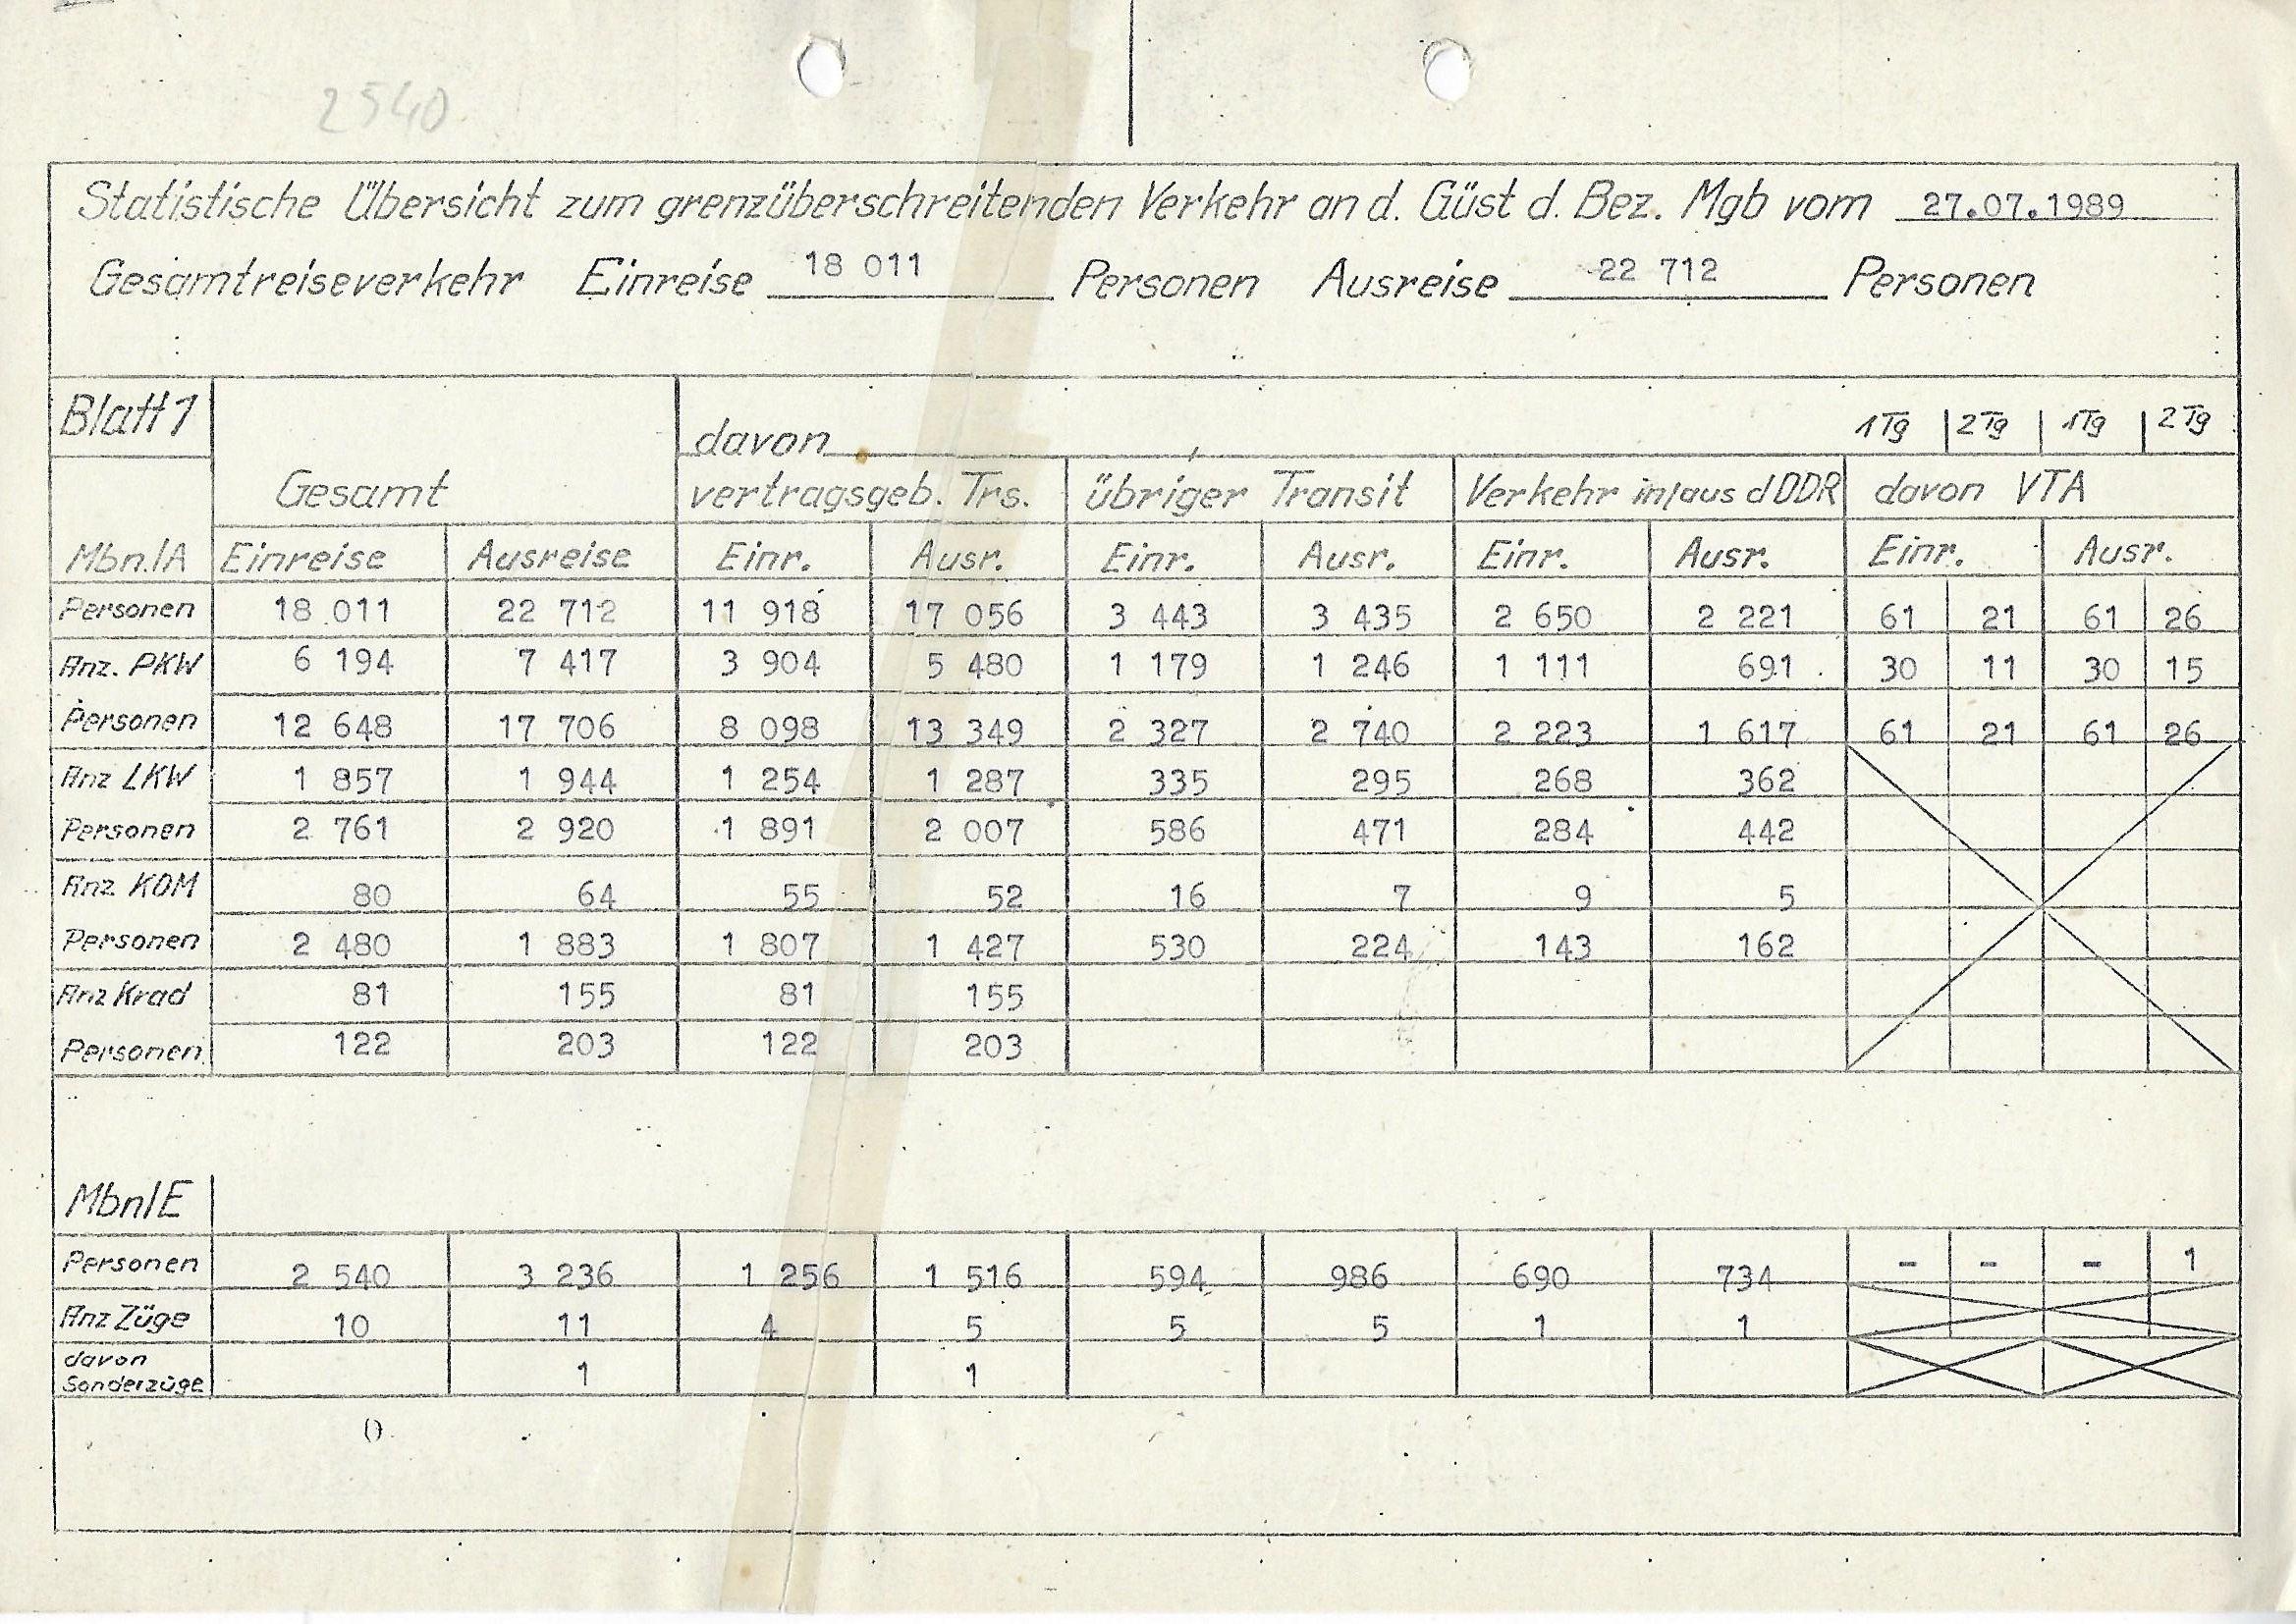 2540
Statistische Übersicht zum grenzüberschreitenden Verkehr an d. Güst d. Bez. Mgb vom 27.07.1989
Gesamtreiseverkehr Einreise 18 011 Personen Ausreise 22 712 Personen
Blatt 1 davon 1Tg 2Tg 1Tg 2Tg
Gesamt vertragsgeb. Trs. übriger Transit Verkehr in/aus d DDR davon VTA
Mbn./A Einreise Ausreise Einr. Ausr. Einr. Ausr. Einr. Ausr. Einr. Ausr.
Personen 18 011 22 712 11 918 17 056 3 443 3 435 2 650 2 221 61 21 61 26
Anz. PKW 6 194 7 417 3 904 5 480 1 179 1 246 1 111 691 30 11 30 15
Personen 12 648 17 706 8 098 13 349 2 327 2 740 2 223 1 617 61 21 61 26
Anz LKW 1 857 1 944 1 254 1 287 335 295 268 362
Personen 2 761 2 920 1 891 2 007 586 471 284 442
Anz KOM 80 64 55 52 16 7 9 5
Personen 2 480 1 883 1 807 1 427 530 224 143 162
Anz Krad 81 155 81 155
Personen 122 203 122 203
Mbn/E
Personen 2 540 3 236 1 256 1 516 594 986 690 734 - - - 1
Anz Züge 10 11 4 5 5 5 1 1
davon
Sonderzüge 1 1
()